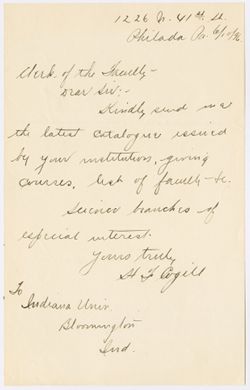 1226 N. 41st St.
Philada Pa. 6/10/96
Clerk of the Faculty-
Dear Sir:-
Kindly send me
the latest catalogue issued
by your institution, giving
courses, list of faculty &c.
Science branches of
especial interest.
Yours truly,
H F Cogill
To
Indiana Univ
Bloomington
Ind.